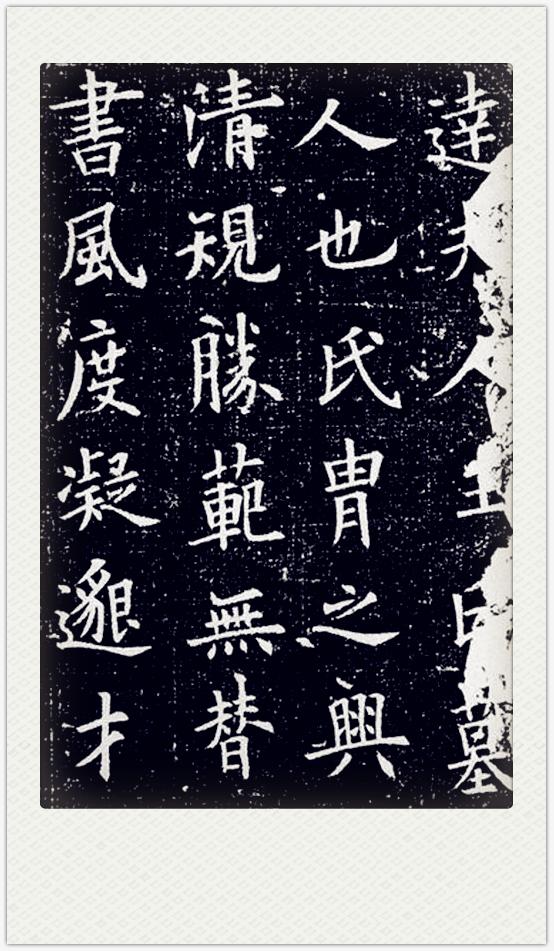 達夫人墓
人也氏胄之興
清規勝範無替
書風度凝邈才